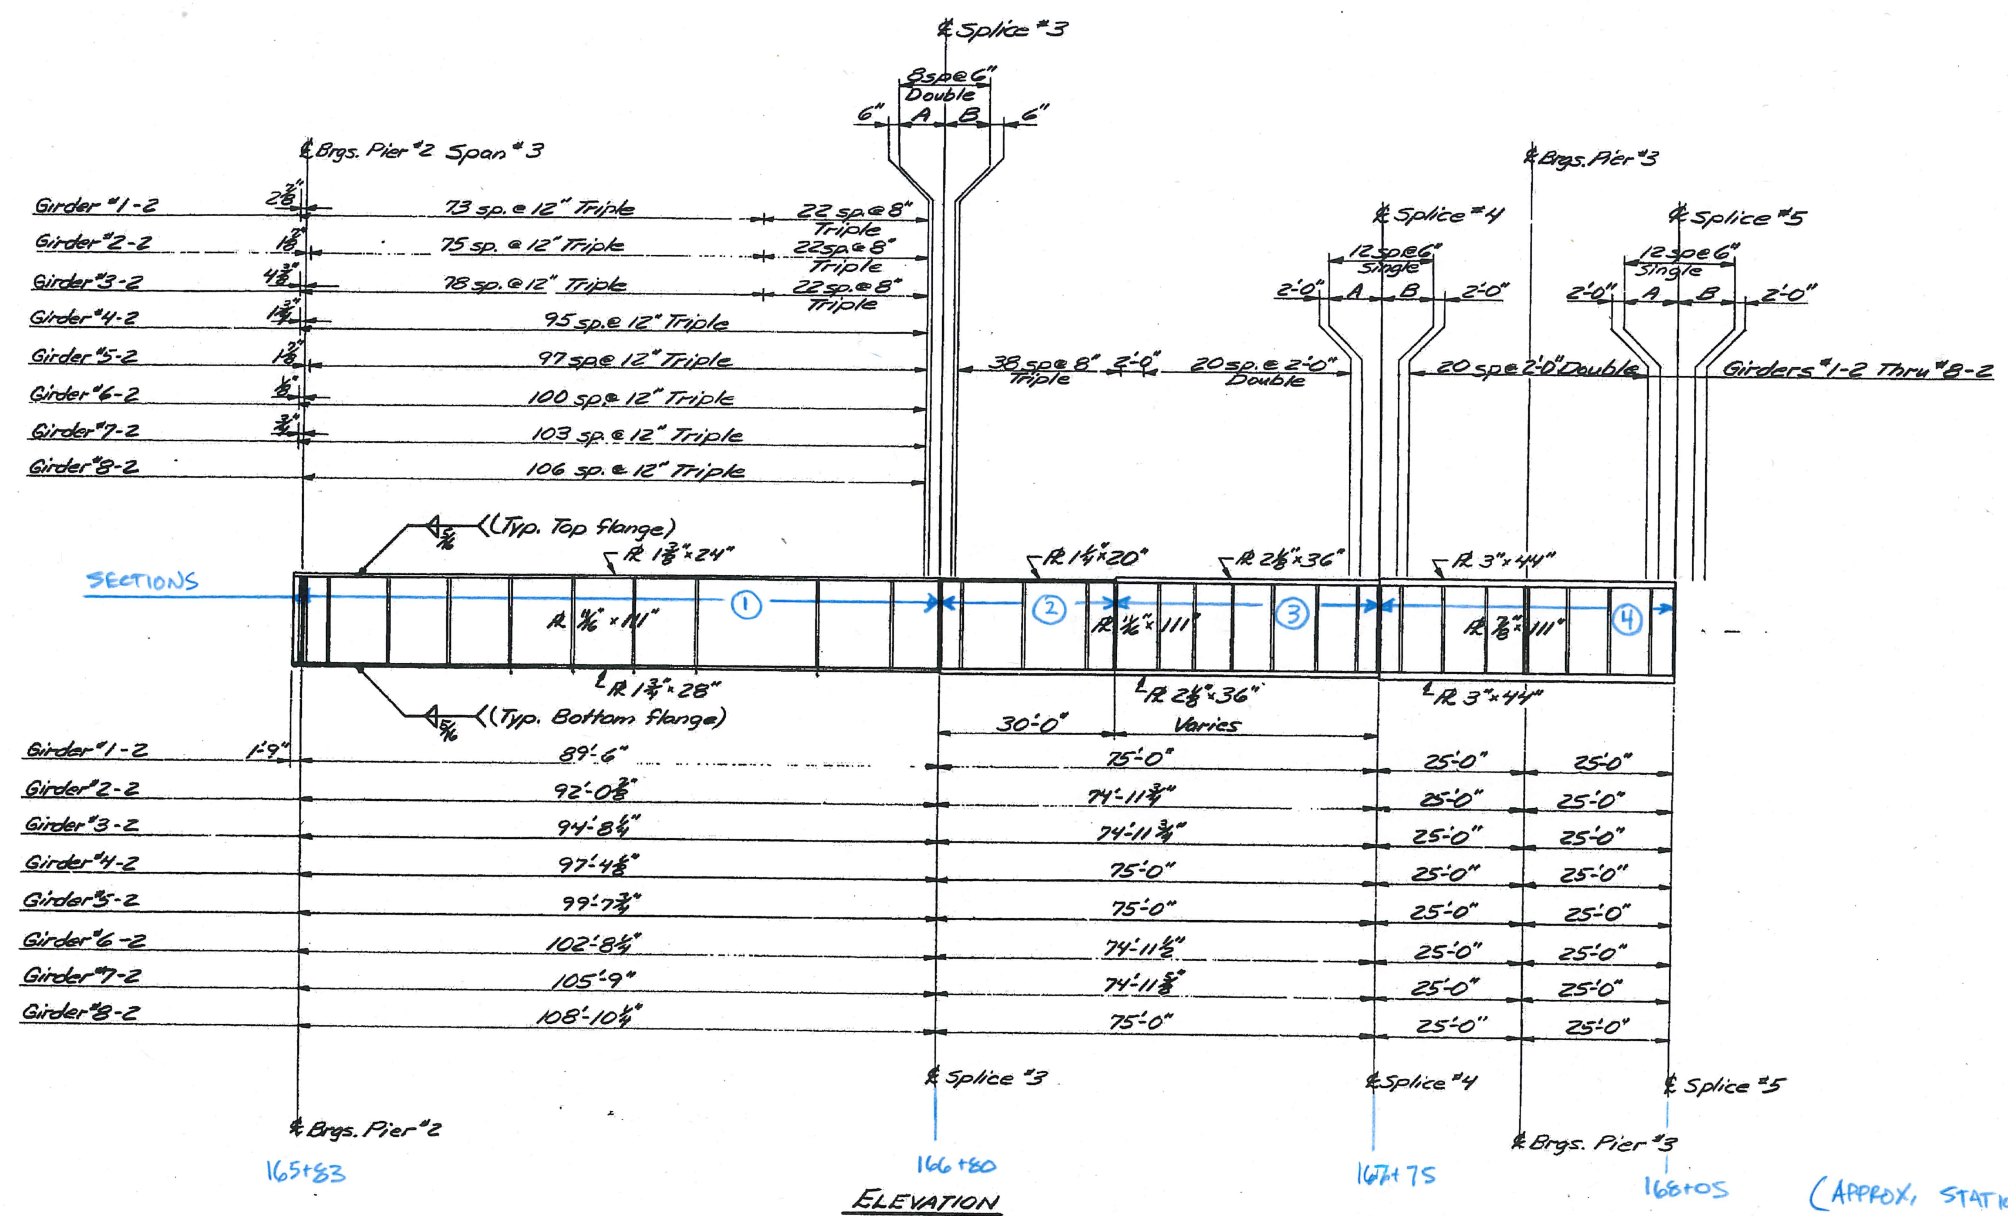 ℄ Splice #3
8sp@6"
Double
6" A B 6"
℄ Brgs. Pier #2 Span #3
℄ Brgs. Pier #3
Girder #1-2 2⅞" 73 sp. @ 12" Triple 22 sp. @ 8"
Triple
Girder #2-2 1⅞" 75 sp. @ 12" Triple 22 sp. @ 8"
Triple
Girder #3-2 4⅜" 78 sp. @ 12" Triple 22 sp. @ 8"
Triple
Girder #4-2 1¾" 95 sp. @ 12" Triple
Girder #5-2 1⅞" 97 sp @ 12" Triple
Girder #6-2 ⅛" 100 sp. @ 12" Triple
Girder #7-2 ¾" 103 sp. @ 12" Triple
Girder #8-2 106 sp. @ 12" Triple
℄ Splice #4
12 sp@6"
Single
2'-0" A B 2'-0"
℄ Splice #5
12 sp@6"
Single
2'-0" A B 2'-0"
38 sp @ 8" 2'-0" 20 sp. @ 2'-0" 20 sp @ 2'-0" Double Girders #1-2 Thru #8-2
Triple Double
5/16 (Typ. Top flange)
℄ 1⅜" x 24" ℄ 1¼" x 20" ℄ 2⅛" x 36" ℄ 3" x 44"
SECTIONS
1 2 3 4
℄ 11/16" x 111" ℄ 11/16" x 111" ℄ ⅞" x 111"
℄ 1¾" x 28" ℄ 2⅛" x 36" ℄ 3" x 44"
5/16 (Typ. Bottom flange)
30'-0" Varies
Girder #1-2 1'-9" 89'-6" 75'-0" 25'-0" 25'-0"
Girder #2-2 92'-0⅜" 74'-11¾" 25'-0" 25'-0"
Girder #3-2 94'-8¼" 74'-11¾" 25'-0" 25'-0"
Girder #4-2 97'-4⅛" 75'-0" 25'-0" 25'-0"
Girder #5-2 99'-7¾" 75'-0" 25'-0" 25'-0"
Girder #6-2 102'-8¼" 74'-11½" 25'-0" 25'-0"
Girder #7-2 105'-9" 74'-11⅝" 25'-0" 25'-0"
Girder #8-2 108'-10¼" 75'-0" 25'-0" 25'-0"
℄ Splice #3 ℄ Splice #4 ℄ Splice #5
℄ Brgs. Pier #2 ℄ Brgs. Pier #3
165+83 166+80 167+75 168+05
(APPROX,
ELEVATION